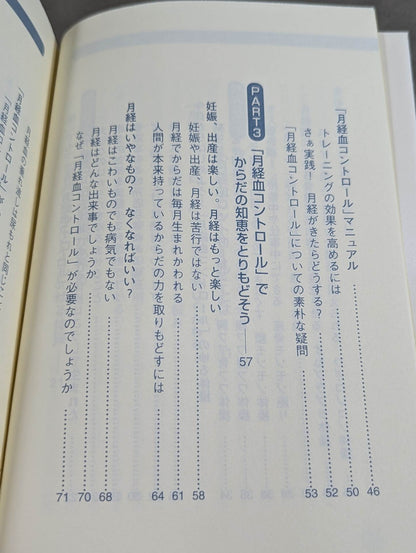 「月経血コントロール」マニュアル……46
トレーニングの効果を高めるには……50
さぁ実践！　月経がきたらどうする？……52
「月経血コントロール」についての素朴な疑問……53
PART3
「月経血コントロール」で
からだの知恵をとりもどそう――57
妊娠、出産は楽しい。月経はもっと楽しい
妊娠や出産、月経は苦行ではない……58
月経でからだは毎月生まれかわれる……61
人間が本来持っているからだの力を取りもどすには……64
月経はいやなもの？　なくなればいい？
月経はこわいものでも病気でもない……68
月経はどんな出来事でしょうか……70
なぜ「月経血コントロール」が必要なのでしょうか……71